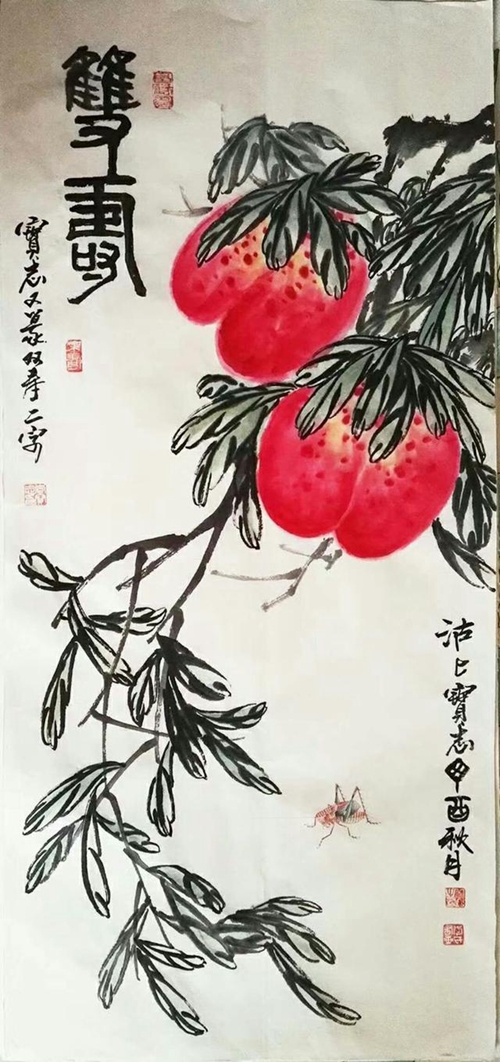 雙壽
寶志又篆双寿二字
沽上寶志丁酉秋月